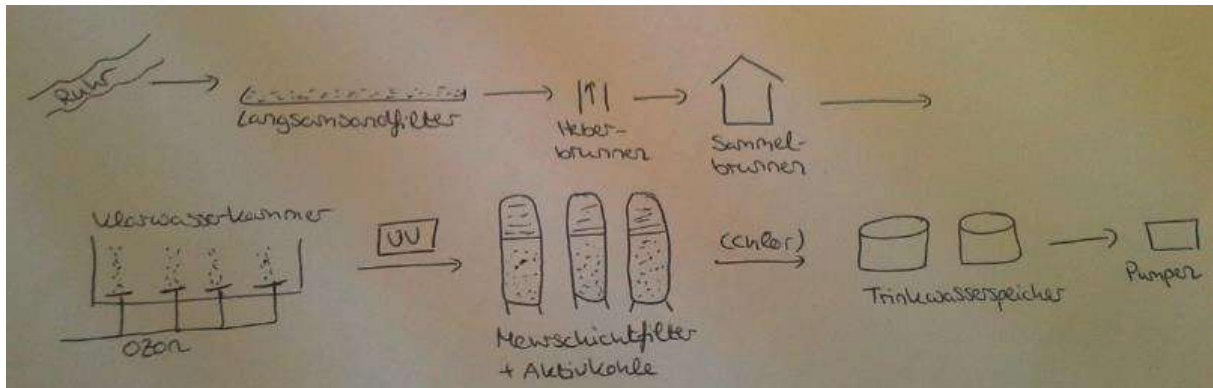 Ruhr
Langsamsandfilter
Heber-
brunnen
Sammel-
brunnen
Klarwasserkammer
Ozon
UV
Mehrschichtfilter
+ Aktivkohle
(Chlor)
Trinkwasserspeicher
Pumpen